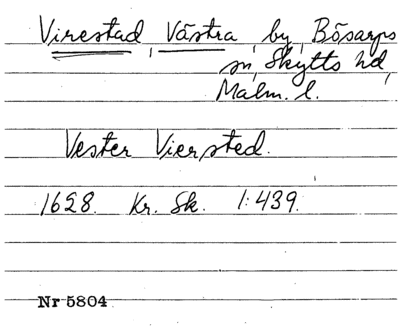 Virestad, Västra, by, Bösarps
sn, Skytts hd,
Malm. l.
Vester Viersted.
1628. Kr. Sk. 1:439.
Nr 5804